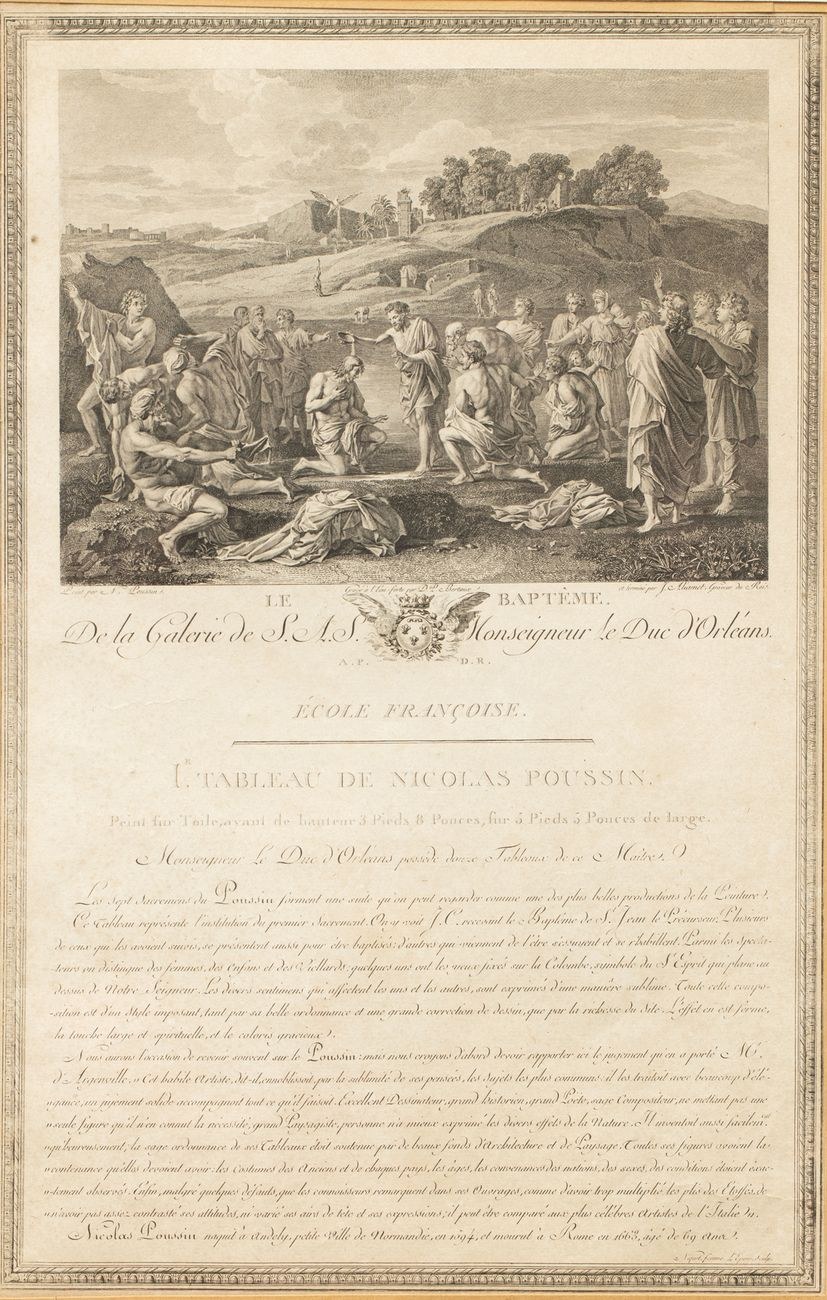 Peint par N. Poussin.
Gravé à l'Eau forte par D. P. Bertaux
et terminé par J. Aliamet, Graveur du Roi.
LE BAPTÊME.
De la Galerie de S. A. S. Monseigneur le Duc d'Orléans.
A. P. D. R.
ÉCOLE FRANÇOISE.
I.R TABLEAU DE NICOLAS POUSSIN.
Peint sur Toile, ayant de hauteur 3 Pieds 8 Pouces, sur 5 Pieds 5 Pouces de large.
Monseigneur le Duc d'Orléans possède douze Tableaux de ce Maître.
Les Sept Sacremens du Poussin forment une suite qu'on peut regarder comme une des plus belles productions de la Peinture.
Ce Tableau représente l'institution du premier Sacrement. On y voit J. C. recevant le Baptême de S. Jean le Précurseur. Plusieurs
de ceux qui les avoient suivis, se présentent aussi pour être baptisés: d'autres qui viennent de l'être s'essuient et se rhabillent. Parmi les Specta-
-teurs on distingue des femmes, des Enfans et des Vieillards: quelques uns ont les yeux fixés sur la Colombe, simbole du S.t Esprit qui plane au
dessus de Notre Seigneur. Les divers sentimens qui affectent les uns et les autres, sont exprimés d'une manière sublime. Toute cette compo-
-sition est d'un Style imposant, tant par sa belle ordonnance et une grande correction de dessin, que par la richesse du Site. L'effet en est ferme,
la touche large et spirituelle, et le coloris gracieux.
Nous aurons l'occasion de revenir souvent sur le Poussin: mais nous croyons d'abord devoir rapporter ici le jugement qu'en a porté M.
d'Argenville. » Cet habile Artiste, dit-il, ennoblissoit, par la sublimité de ses pensées, les Sujets les plus communs: il les traitoit avec beaucoup d'élé-
»gance, un jugement solide accompagnoit tout ce qu'il faisoit. Excellent Dessinateur, grand historien, grand Poete, sage Compositeur, ne mettant pas une
»seule figure qu'il n'en connut la nécessité, grand Paysagiste, personne n'a mieux exprimé les divers effets de la Nature. Il inventoit aussi facilem.t
»qu'heureusement, la sage ordonnance de ses Tableaux étoit soutenue par de beaux fonds d'Architecture et de Paysage. Toutes ses figures avoient la
»contenance qu'elles devoient avoir: les Costumes des Anciens et de chaques pays, les âges, les convenances des nations, des sexes, des conditions étoient éxac-
»-tement observés. Enfin, malgré quelques défauts, que les connoisseurs remarquent dans ses Ouvrages, comme d'avoir trop multiplié les plis des Etoffes, de
»n'avoir pas assez contrasté ses attitudes, ni varié ses airs de tête et ses expressions; il peut être comparé aux plus célèbres Artistes de l'Italie ».
Nicolas Poussin naquit à Andely, petite Ville de Normandie, en 1594, et mourut à Rome en 1663, âgé de 69 Ans.